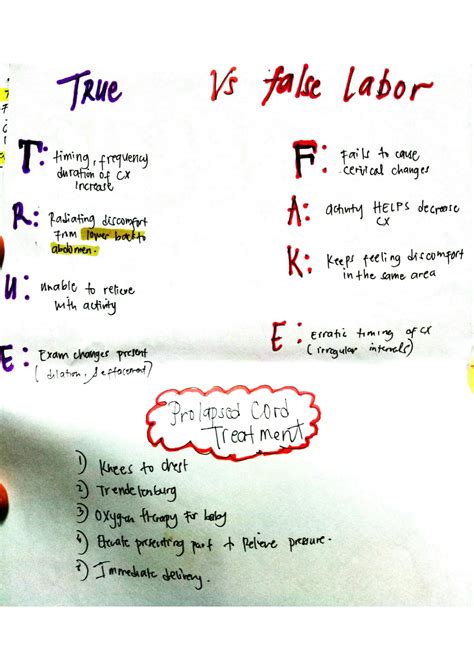 TRUE Vs false labor
T: timing, frequency
duration of CX
increase
R: Radiating discomfort
from lower back to
abdomen.
U: unable to relieve
with activity
E: Exam changes present
(dilation, & effacement)
F: Fails to cause
cervical changes
A: activity HELPS decrease
CX
K: Keeps feeling discomfort
in the same area
E: Erratic timing of CX
(irregular intervals)
Prolapsed Cord
Treatment
1) Knees to chest
2) Trendelenburg
3) Oxygen therapy for baby
4) Elevate presenting part + Relieve pressure.
5) Immediate delivery.